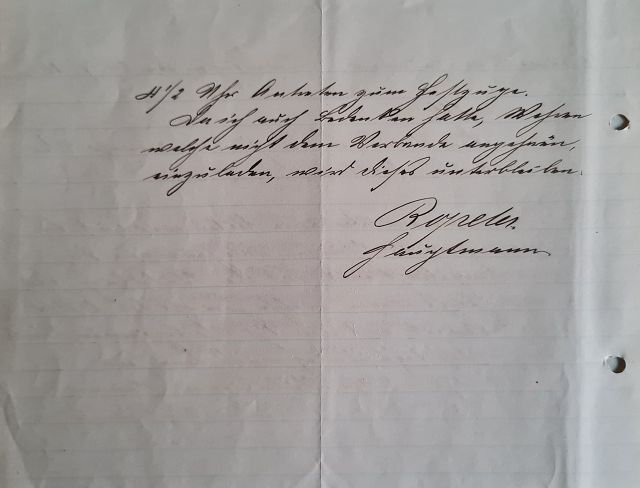 4 1/2 Uhr Antreten zum Festzuge.
Da ich auch Bedenken hatte, Wehren
welche nicht dem Verbande angehören,
einzuladen, wird dieses unterbleiben.
Hauptmann